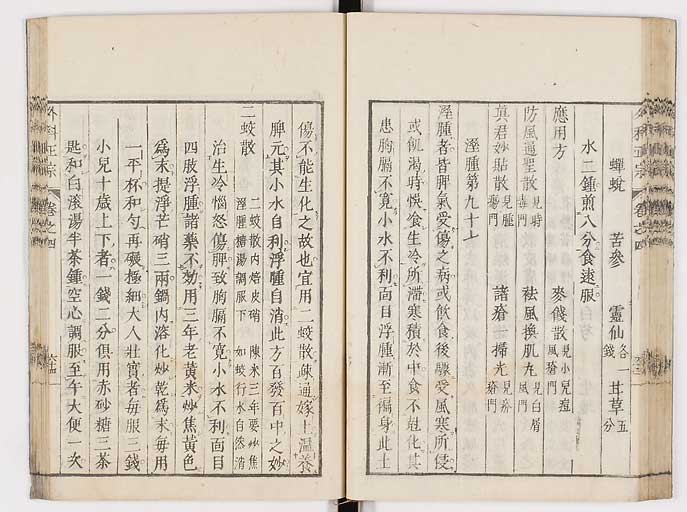 蟬蛻 苦參 靈仙各一錢 甘草五分
水二鍾煎八分食遠服
應用方 麥餞散見小兒痘風瘡門
防風通聖散見時毒門 袪風換肌丸見白屑風門
眞君妙貼散見腫瘍門 諸瘡一掃光見疥瘡門
溼腫第九十七
溼腫者皆脾氣受傷之病或飲食後驟受風寒所侵
或飢渴時悞食生冷所滯寒積於中食不尅化其
患胸膈不寬小水不利面目浮腫漸至徧身此土
傷不能生化之故也宜用二蛟散疎通嫁土溫養
脾元其小水自利浮腫自消此方百發百中之妙
二蛟散 二蛟散內焙皮硝 陳米三年要炒焦
溼腫糖湯調服下 如蛟行水自然消
治生冷惱怒傷脾致胸膈不寬小水不利面目
四肢浮腫諸藥不効用三年老黃米炒焦黃色
爲末提淨芒硝三兩鍋內溶化炒乾爲末每用
一平杯和勻再碾極細大人壯實者每服三錢
小兒十歲上下者一錢二分俱用赤砂糖三茶
匙和白滾湯半茶鍾空心調服至午大便一次
外科正宗 卷之四